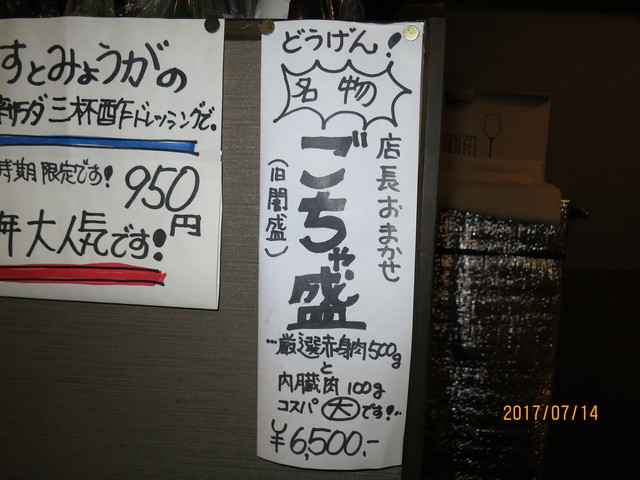 すとみょうがの
サラダ 三杯酢ドレッシングで。
時期限定です! 950円
年大人気です!
どうげん!
名物
店長おまかせ
ごちゃ盛
(旧闇盛)
…厳選赤身肉500g
と
内臓肉100g
コスパ大です!〟
¥6,500.-
2017/07/14